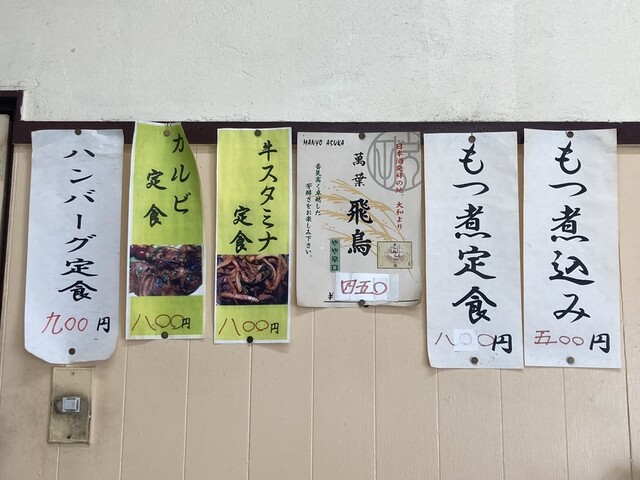 もつ煮込み
五〇〇円
もつ煮定食
八〇〇円
MANYO ASUKA
日本酒発祥の地、大和より
萬葉
飛鳥
香気高く卓越した
芳醇さをお楽しみ下さい。
やや辛口
¥
四五〇
牛スタミナ
定食
八〇〇円
カルビ
定食
八〇〇円
ハンバーグ定食
九〇〇円